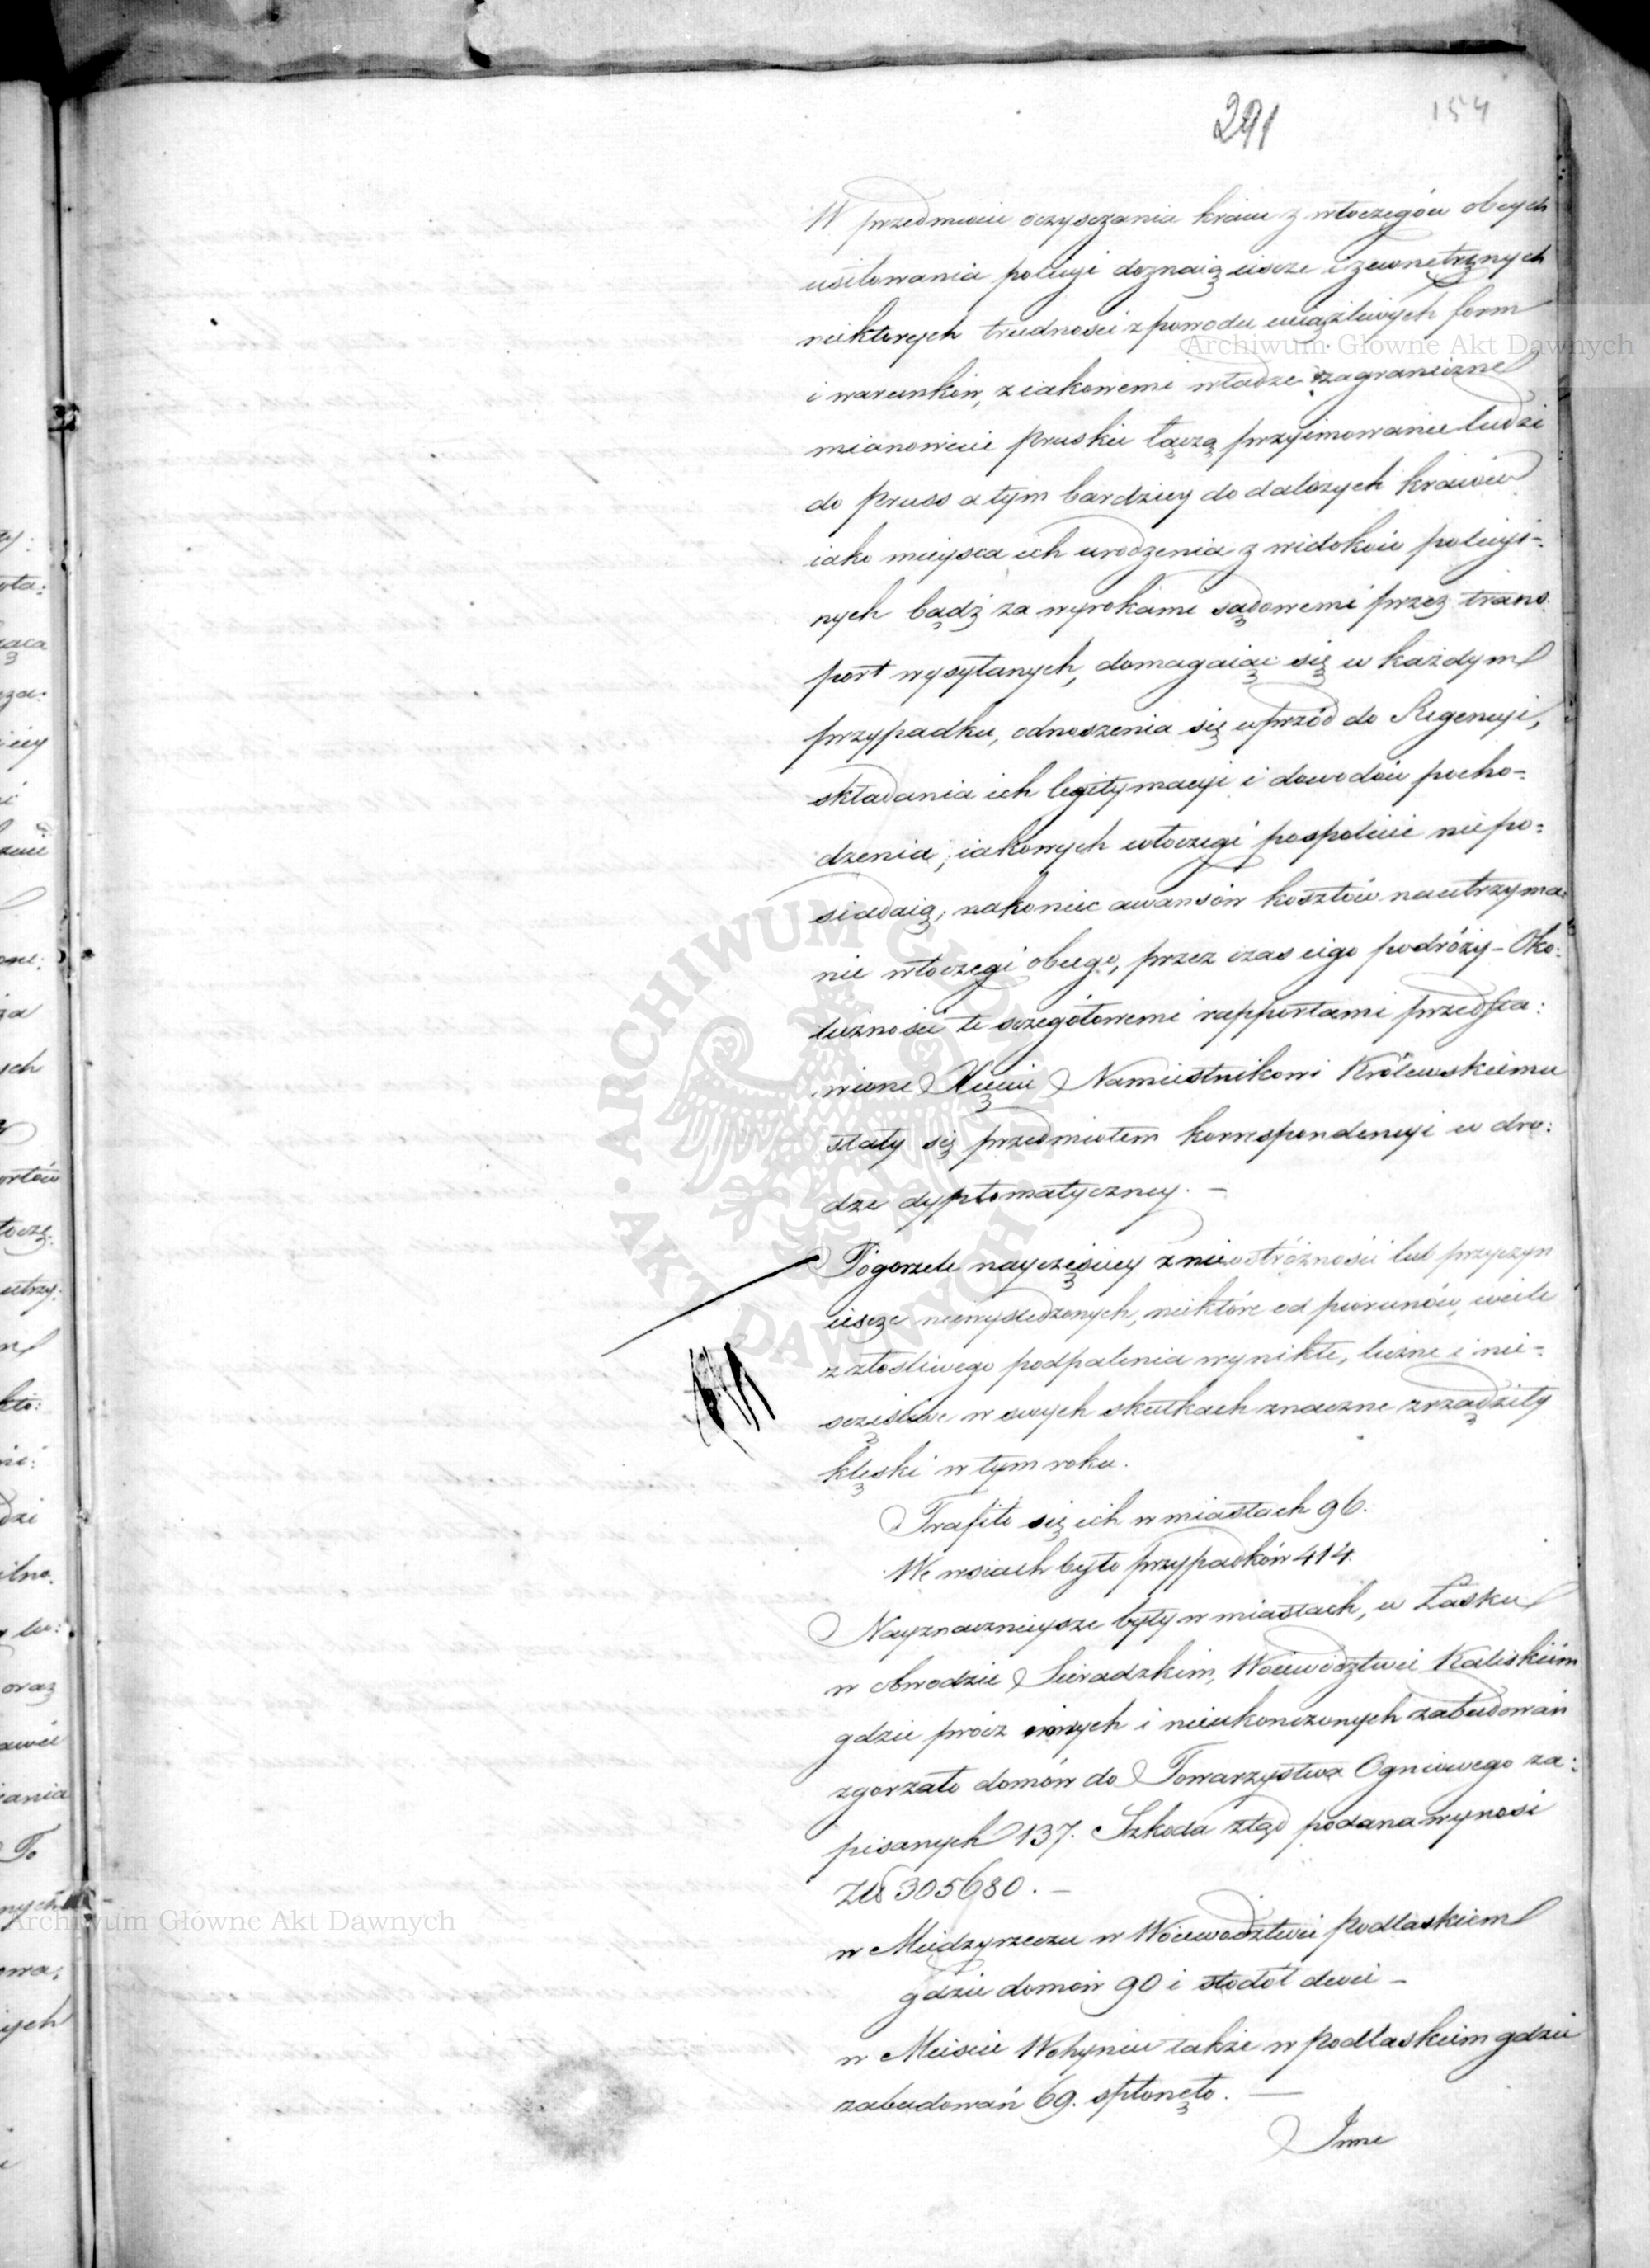 291
154
W przedmiocie oczysczania kraiu z włoczęgów obcych
usiłowania policyi doznaią ieszcze i zewnetrznych
niektorych trudnosci z powodu uciążliwych form
i warunków, z iakowemi władze zagraniczne
mianowicie Pruskie łączą przyimowanie ludzi
do Pruss a tym bardziey do dalszych kraiów
iako mieysca ich urodzenia z widoków policyi-
nych bądź za wyrokami sądowemi przez trans-
port wysyłanych, domagaiąc się w każdym
przypadku, odnoszenia się wprzód do Regencyi,
składania ich legitymacyi i dowodów pocho-
dzenia, iakowych włoczęgi pospolicie niepo-
siadaią; nakoniec awansów kosztów na utrzyma-
nie włoczęgi obcego, przez czas iego podróży – Oko-
liczności te sczegółowemi rapportami przedsta-
wione Xięciu Namiestnikowi Królewskiemu
stały się przedmiotem korrespondencyi w dro-
dze dyplomatyczney. –
Pogorzele nayczęściey z nieostróżności lub przyczyn
ieszcze niewysledzonych, niektóre od piorunów, wiele
z złosliwego podpalenia wynikłe, liczne i nie-
sczęsliwe w swych skutkach znaczne zrządziły
klęski w tym roku.
Trafiło się ich w miastach 96.
We wsiach było przypadków 414.
Nayznacznieysze były w miastach, w Łasku
w Obwodzie Sieradzkim, Woiewództwie Kaliskiém
gdzie prócz innych i nieukonczonych zabudowań
zgorzało domów do Towarzystwa Ogniowego za-
pisanych 137. Szkoda ztąd podana wynosi
Złł 305680. –
w Miedzyrzeczu w Woiewodztwie Podlaskiem
gdzie domów 90 i stodoł dwie –
w Miescie Wohyniu także w Podlaskiem gdzie
zabudowań 69. spłonęło. –
Inne
Archiwum Główne Akt Dawnych
Archiwum Główne Akt Dawnych
ARCHIWUM GŁÓWNE AKT DAWNYCH